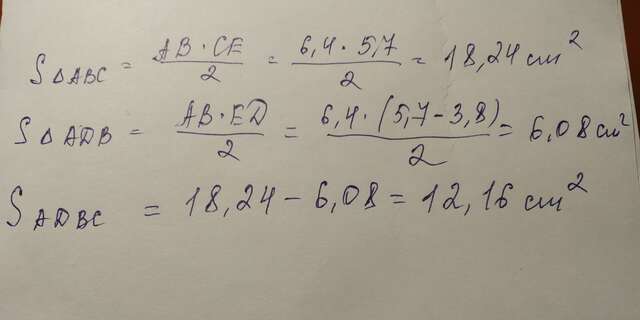 S△ABC = AB · CE / 2 = 6,4 · 5,7 / 2 = 18,24 cm²
S△ADB = AB · ED / 2 = 6,4 · (5,7 - 3,8) / 2 = 6,08 cm²
SADBC = 18,24 - 6,08 = 12,16 cm²